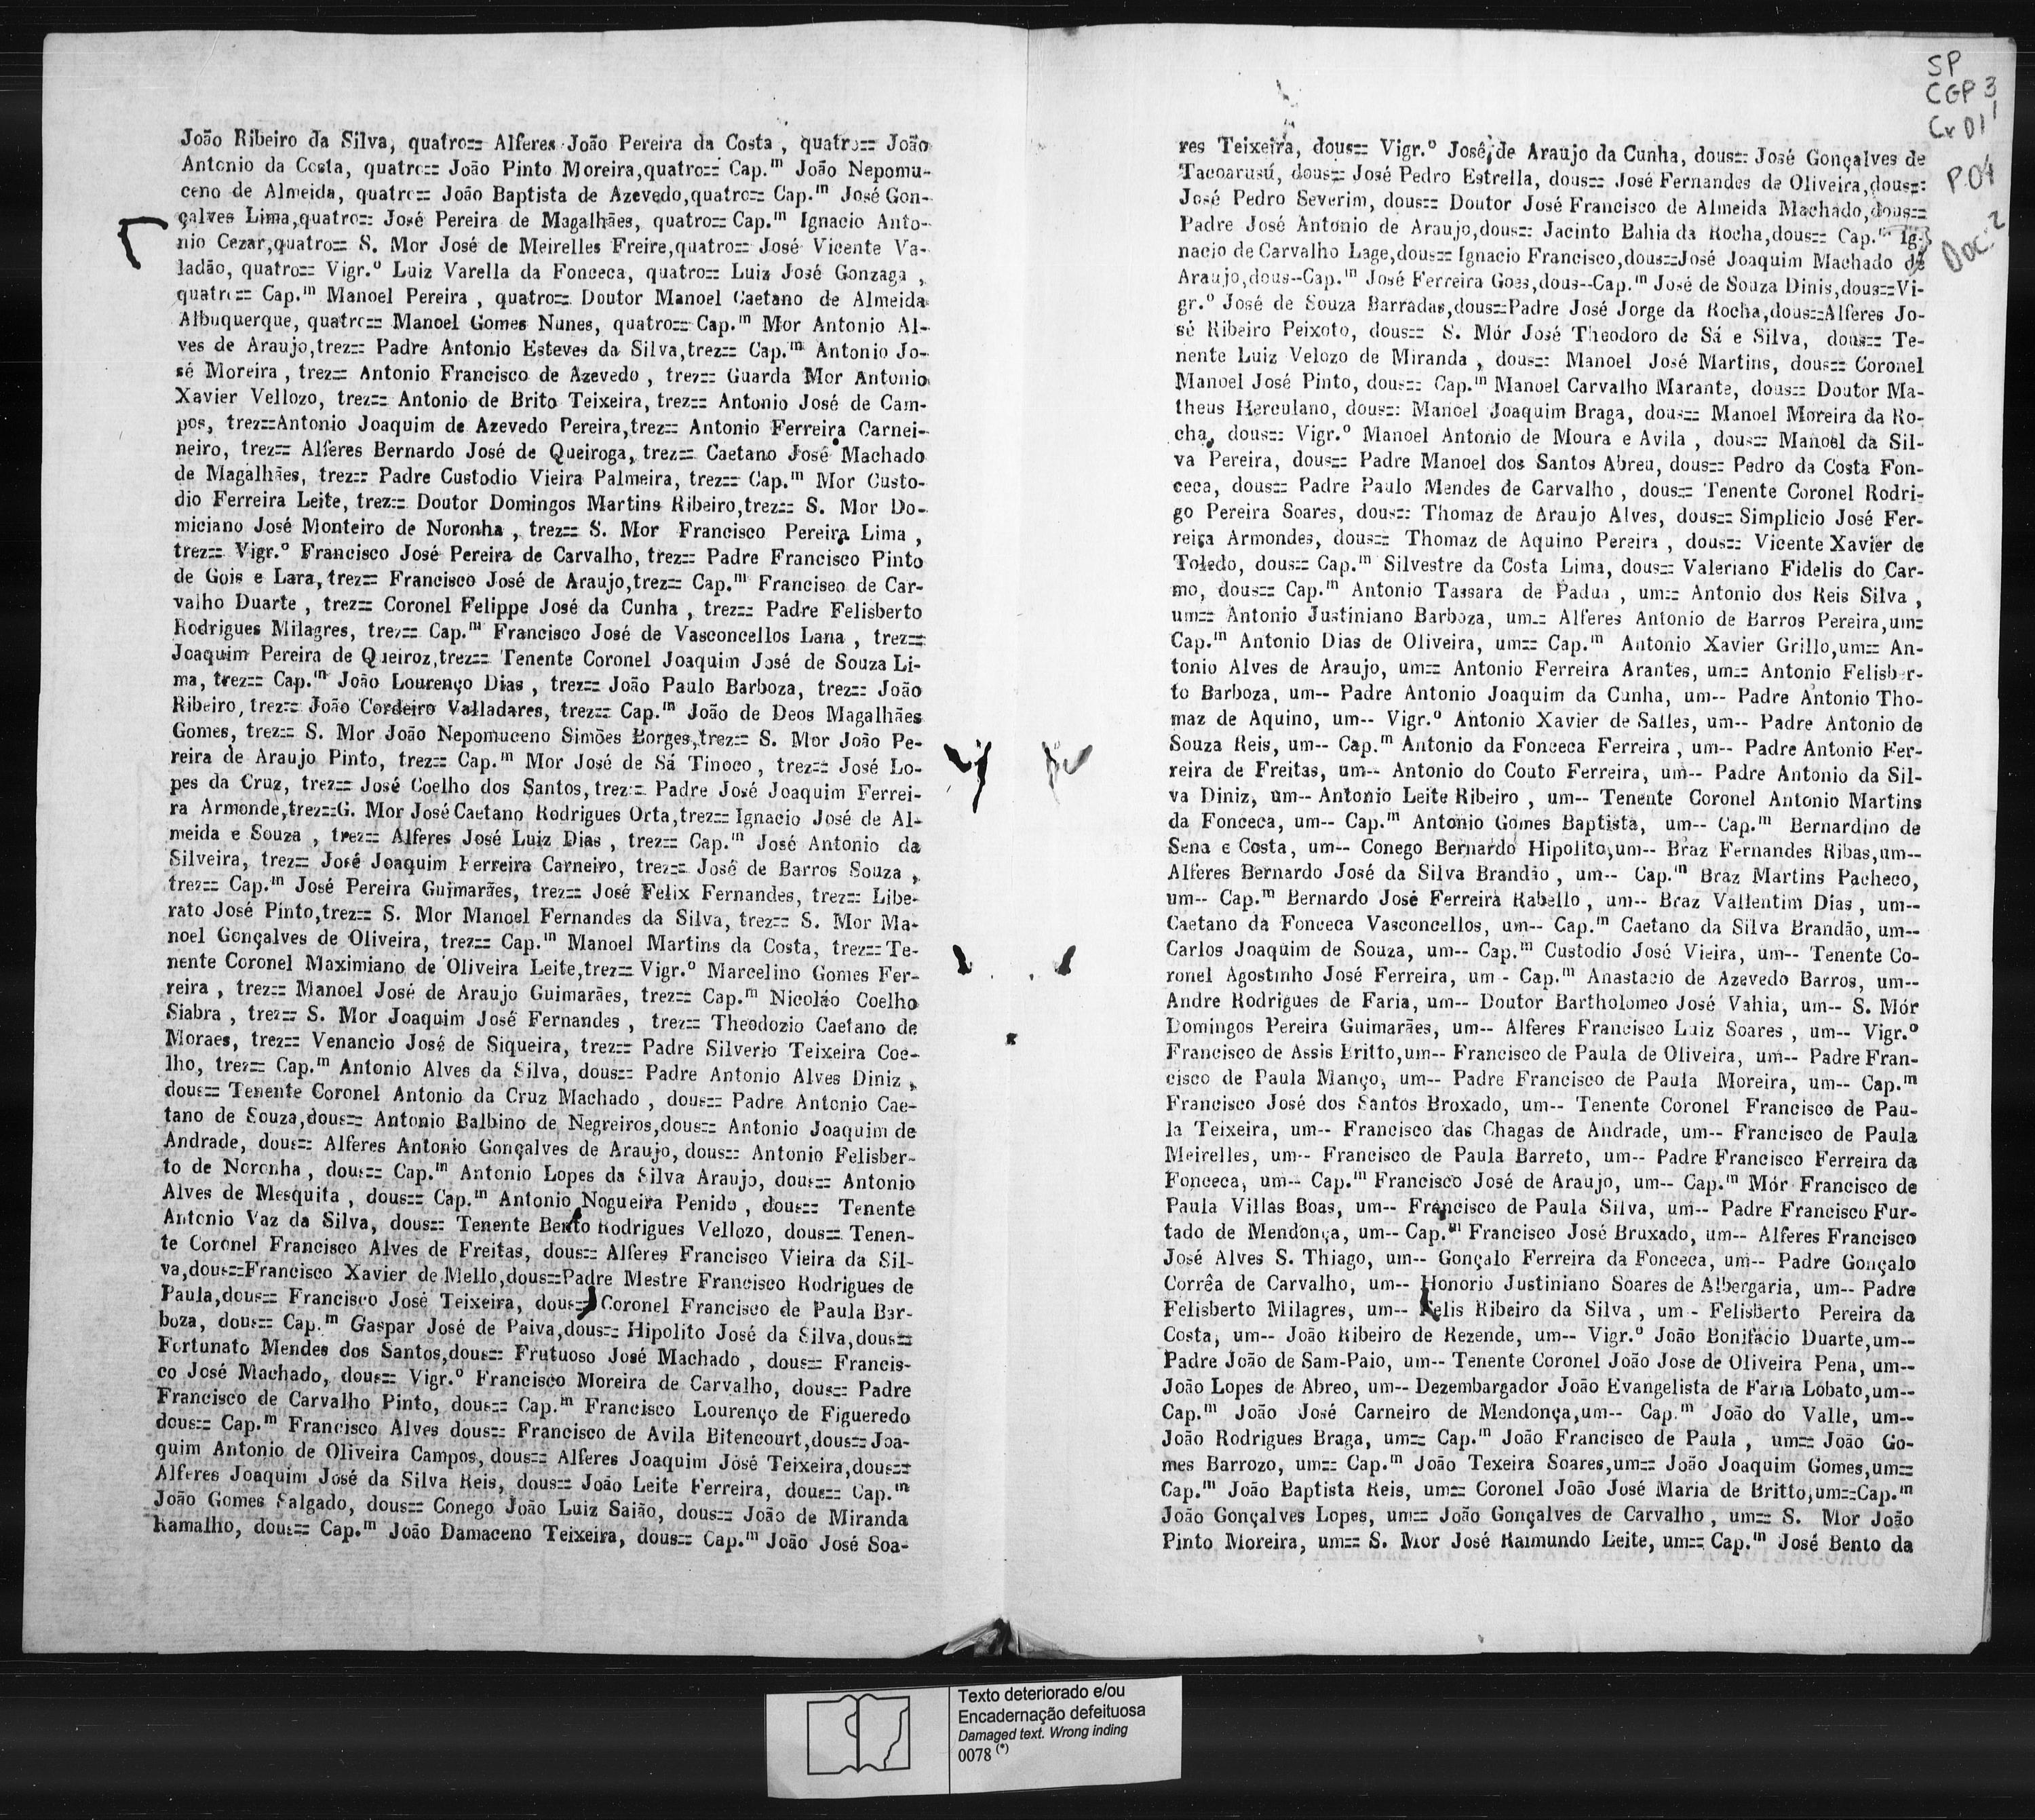 João Ribeiro da Silva, quatro== Alferes João Pereira da Costa , quatro== João
Antonio da Costa, quatro== João Pinto Moreira,quatro== Cap.m João Nepomu-
ceno de Almeida, quatro== João Baptista de Azevedo,quatro== Cap.m José Gon-
çalves Lima,quatro== José Pereira de Magalhães, quatro== Cap.m Ignacio Anto-
nio Cezar,quatro== S. Mor José de Meirelles Freire,quatro== José Vicente Va-
ladão, quatro== Vigr.o Luiz Varella da Fonceca, quatro== Luiz José Gonzaga ,
quatro== Cap.m Manoel Pereira , quatro== Doutor Manoel Caetano de Almeida
Albuquerque, quatro== Manoel Gomes Nunes, quatro== Cap.m Mor Antonio Al-
ves de Araujo,trez== Padre Antonio Esteves da Silva,trez== Cap.m Antonio Jo-
sé Moreira , trez== Antonio Francisco de Azevedo , trez== Guarda Mor Antonio
Xavier Vellozo, trez== Antonio de Brito Teixeira, trez== Antonio José de Cam-
pos, trez==Antonio Joaquim de Azevedo Pereira,trez== Antonio Ferreira Carnei-
neiro, trez== Alferes Bernardo José de Queiroga, trez== Caetano José Machado
de Magalhães, trez== Padre Custodio Vieira Palmeira, trez== Cap.m Mor Custo-
dio Ferreira Leite, trez== Doutor Domingos Martins Ribeiro,trez== S. Mor Do-
miciano José Monteiro de Noronha , trez== S. Mor Francisco Pereira Lima ,
trez== Vigr.o Francisco José Pereira de Carvalho, trez== Padre Francisco Pinto
de Gois e Lara, trez== Francisco José de Araujo,trez== Cap.m Francisco de Car-
valho Duarte , trez== Coronel Felippe José da Cunha , trez== Padre Felisberto
Rodrigues Milagres, trez== Cap.m Francisco José de Vasconcellos Lana , trez==
Joaquim Pereira de Queiroz,trez== Tenente Coronel Joaquim José de Souza Li-
ma, trez== Cap.m João Lourenço Dias , trez== João Paulo Barboza, trez== João
Ribeiro, trez== João Cordeiro Valladares, trez== Cap.m João de Deos Magalhães
Gomes, trez== S. Mor João Nepomuceno Simões Borges,trez== S. Mor João Pe-
reira de Araujo Pinto, trez== Cap.m Mor José de Sá Tinoco , trez== José Lo-
pes da Cruz, trez== José Coelho dos Santos, trez== Padre José Joaquim Ferrei-
ra Armonde,trez==G. Mor José Caetano Rodrigues Orta,trez== Ignacio José de Al-
meida e Souza , trez== Alferes José Luiz Dias , trez== Cap.m José Antonio da
Silveira, trez== José Joaquim Ferreira Carneiro, trez== José de Barros Souza ,
trez== Cap.m José Pereira Guimarães, trez== José Felix Fernandes, trez== Libe-
rato José Pinto,trez== S. Mor Manoel Fernandes da Silva, trez== S. Mor Ma-
noel Gonçalves de Oliveira, trez== Cap.m Manoel Martins da Costa, trez== Te-
nente Coronel Maximiano de Oliveira Leite,trez== Vigr.o Marcelino Gomes Fer-
reira , trez== Manoel José de Araujo Guimarães, trez== Cap.m Nicoláo Coelho
Siabra , trez== S. Mor Joaquim José Fernandes , trez== Theodozio Caetano de
Moraes, trez== Venancio José de Siqueira, trez== Padre Silverio Teixeira Coe-
lho, trez== Cap.m Antonio Alves da Silva, dous== Padre Antonio Alves Diniz ,
dous== Tenente Coronel Antonio da Cruz Machado , dous== Padre Antonio Cae-
tano de Souza,dous== Antonio Balbino de Negreiros,dous== Antonio Joaquim de
Andrade, dous== Alferes Antonio Gonçalves de Araujo, dous== Antonio Felisber-
to de Noronha , dous== Cap.m Antonio Lopes da Silva Araujo, dous== Antonio
Alves de Mesquita , dous== Cap.m Antonio Nogueira Penido , dous== Tenente
Antonio Vaz da Silva, dous== Tenente Bento Rodrigues Vellozo, dous== Tenen-
te Coronel Francisco Alves de Freitas, dous== Alferes Francisco Vieira da Sil-
va,dous==Francisco Xavier de Mello,dous==Padre Mestre Francisco Rodrigues de
Paula,dous== Francisco José Teixeira, dous== Coronel Francisco de Paula Bar-
boza, dous== Cap.m Gaspar José de Paiva,dous== Hipolito José da Silva,dous==
Fortunato Mendes dos Santos,dous== Frutuoso José Machado , dous== Francis-
co José Machado, dous== Vigr.o Francisco Moreira de Carvalho, dous== Padre
Francisco de Carvalho Pinto, dous== Cap.m Francisco Lourenço de Figueredo
dous== Cap.m Francisco Alves dous== Francisco de Avila Bitencourt,dous== Joa-
quim Antonio de Oliveira Campos, dous== Alferes Joaquim José Teixeira,dous==
Alferes Joaquim José da Silva Reis, dous== João Leite Ferreira, dous== Cap.m
João Gomes Salgado, dous== Conego João Luiz Saião, dous== João de Miranda
Ramalho, dous== Cap.m João Damaceno Teixeira, dous== Cap.m João José Soa-
SP
CGP 3
Cx 01 1
P.04
Doc. 2
res Teixeira, dous== Vigr.o José de Araujo da Cunha, dous== José Gonçalves de
Tacoarusú, dous== José Pedro Estrella, dous== José Fernandes de Oliveira,dous==
José Pedro Severim, dous== Doutor José Francisco de Almeida Machado,dous==
Padre José Antonio de Araujo,dous== Jacinto Bahia da Rocha,dous== Cap.m Ig-
nacio de Carvalho Lage,dous== Ignacio Francisco,dous==José Joaquim Machado de
Araujo,dous--Cap.m José Ferreira Goes,dous--Cap.m José de Souza Dinis,dous==Vi-
gr.o José de Souza Barradas,dous==Padre José Jorge da Rocha,dous==Alferes Jo-
sé Ribeiro Peixoto, dous== S. Mór José Theodoro de Sá e Silva, dous== Te-
nente Luiz Velozo de Miranda , dous== Manoel José Martins, dous== Coronel
Manoel José Pinto, dous== Cap.m Manoel Carvalho Marante, dous== Doutor Ma-
theus Herculano, dous== Manoel Joaquim Braga, dous== Manoel Moreira da Ro-
cha, dous== Vigr.o Manoel Antonio de Moura e Avila , dous== Manoel da Sil-
va Pereira, dous== Padre Manoel dos Santos Abreu, dous== Pedro da Costa Fon-
ceca, dous== Padre Paulo Mendes de Carvalho , dous== Tenente Coronel Rodri-
go Pereira Soares, dous== Thomaz de Araujo Alves, dous== Simplicio José Fer-
reira Armondes, dous== Thomaz de Aquino Pereira , dous== Vicente Xavier de
Toledo, dous== Cap.m Silvestre da Costa Lima, dous== Valeriano Fidelis do Car-
mo, dous== Cap.m Antonio Tassara de Padua , um== Antonio dos Reis Silva ,
um== Antonio Justiniano Barboza, um== Alferes Antonio de Barros Pereira,um=
Cap.m Antonio Dias de Oliveira, um== Cap.m Antonio Xavier Grillo,um== An-
tonio Alves de Araujo, um== Antonio Ferreira Arantes, um== Antonio Felisber-
to Barboza, um-- Padre Antonio Joaquim da Cunha, um-- Padre Antonio Tho-
maz de Aquino, um-- Vigr.o Antonio Xavier de Salles, um-- Padre Antonio de
Souza Reis, um-- Cap.m Antonio da Fonceca Ferreira , um-- Padre Antonio Fer-
reira de Freitas, um-- Antonio do Couto Ferreira, um-- Padre Antonio da Sil-
va Diniz, um-- Antonio Leite Ribeiro , um-- Tenente Coronel Antonio Martins
da Fonceca, um-- Cap.m Antonio Gomes Baptista, um-- Cap.m Bernardino de
Sena e Costa, um-- Conego Bernardo Hipolito,um-- Braz Fernandes Ribas,um--
Alferes Bernardo José da Silva Brandão , um-- Cap.m Braz Martins Pacheco,
um-- Cap.m Bernardo José Ferreira Rabello , um-- Braz Vallentim Dias , um--
Caetano da Fonceca Vasconcellos, um-- Cap.m Caetano da Silva Brandão, um--
Carlos Joaquim de Souza, um-- Cap.m Custodio José Vieira, um-- Tenente Co-
ronel Agostinho José Ferreira, um - Cap.m Anastacio de Azevedo Barros, um--
Andre Rodrigues de Faria, um-- Doutor Bartholomeo José Vahia, um-- S. Mór
Domingos Pereira Guimarães, um-- Alferes Francisco Luiz Soares , um-- Vigr.o
Francisco de Assis Britto,um-- Francisco de Paula de Oliveira, um-- Padre Fran-
cisco de Paula Manço, um-- Padre Francisco de Paula Moreira, um-- Cap.m
Francisco José dos Santos Broxado, um-- Tenente Coronel Francisco de Pau-
la Teixeira, um-- Francisco das Chagas de Andrade, um-- Francisco de Paula
Meirelles, um-- Francisco de Paula Barreto, um-- Padre Francisco Ferreira da
Fonceca, um-- Cap.m Francisco José de Araujo, um-- Cap.m Mór Francisco de
Paula Villas Boas, um-- Francisco de Paula Silva, um-- Padre Francisco Fur-
tado de Mendonça, um-- Cap.m Francisco José Bruxado, um-- Alferes Francisco
José Alves S. Thiago, um-- Gonçalo Ferreira da Fonceca, um-- Padre Gonçalo
Corrêa de Carvalho, um-- Honorio Justiniano Soares de Albergaria, um-- Padre
Felisberto Milagres, um-- Felis Ribeiro da Silva , um - Felisberto Pereira da
Costa, um-- João Ribeiro de Rezende, um-- Vigr.o João Bonifácio Duarte,um--
Padre João de Sam-Paio, um-- Tenente Coronel João Jose de Oliveira Pena, um--
João Lopes de Abreo, um-- Dezembargador João Evangelista de Faria Lobato,um--
Cap.m João José Carneiro de Mendonça,um-- Cap.m João do Valle, um--
João Rodrigues Braga, um== Cap.m João Francisco de Paula , um== João Go-
mes Barrozo, um== Cap.m João Texeira Soares,um== João Joaquim Gomes,um==
Cap.m João Baptista Reis, um== Coronel João José Maria de Britto,um==Cap.m
João Gonçalves Lopes, um== João Gonçalves de Carvalho , um== S. Mor João
Pinto Moreira, um== S. Mor José Raimundo Leite, um== Cap.m José Bento da
Texto deteriorado e/ou
Encadernação defeituosa
Damaged text. Wrong inding
0078 (*)